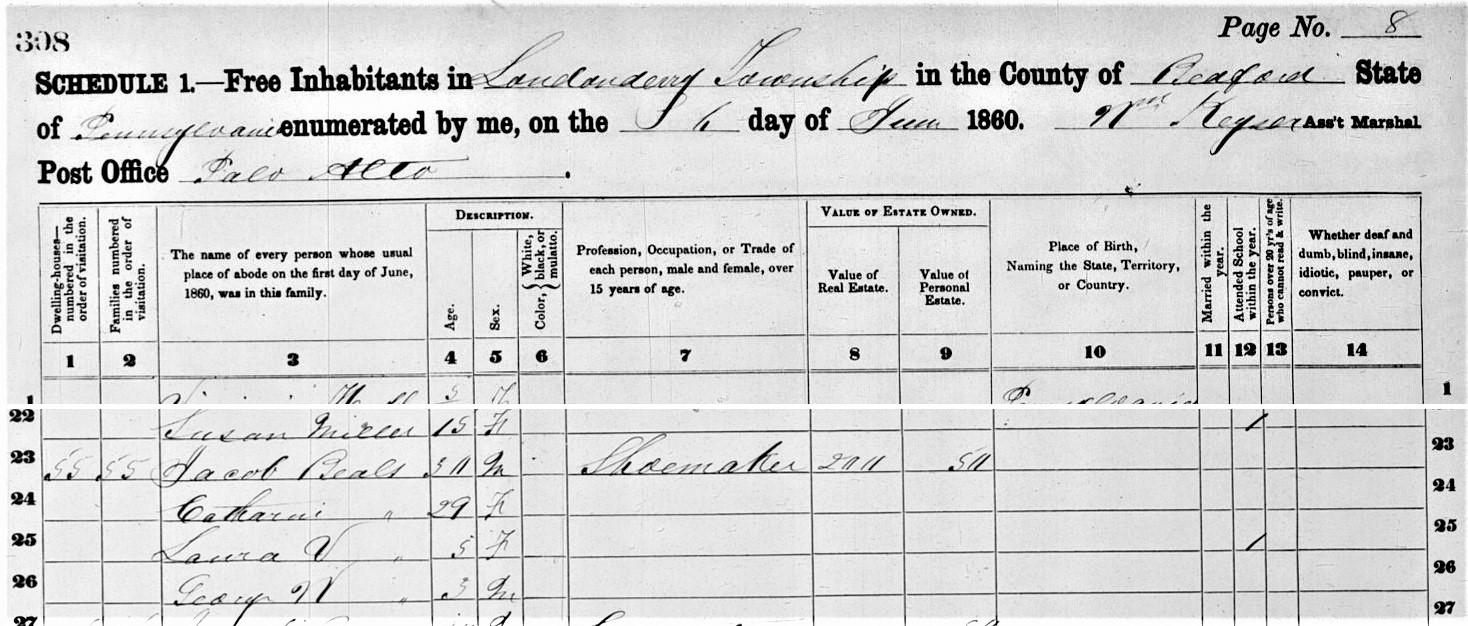 308
Page No. 8
SCHEDULE 1.—Free Inhabitants in Londonderry Township in the County of Bedford State
of Pennsylvania enumerated by me, on the 6 day of June 1860. Wm Keyser Ass't Marshal
Post Office Palo Alto.
Dwelling-houses—numbered in the order of visitation.
Families numbered in the order of visitation.
The name of every person whose usual
place of abode on the first day of June,
1860, was in this family.
DESCRIPTION.
Age.
Sex.
Color, { White, black, or mulatto.
Profession, Occupation, or Trade of
each person, male and female, over
15 years of age.
VALUE OF ESTATE OWNED.
Value of
Real Estate.
Value of
Personal
Estate.
Place of Birth,
Naming the State, Territory,
or Country.
Married within the year.
Attended School within the year.
Persons over 20 yr's of age who cannot read & write.
Whether deaf and
dumb, blind, insane,
idiotic, pauper, or
convict.
1 2 3 4 5 6 7 8 9 10 11 12 13 14
1 3 F Pennsylvania 1
22 Susan Miller 15 F / 23
23 55 55 Jacob Beals 30 M Shoemaker 200 50 24
24 Catharine " 29 F 25
25 Laura V " 5 F / 26
26 George W " 3 M 27
27